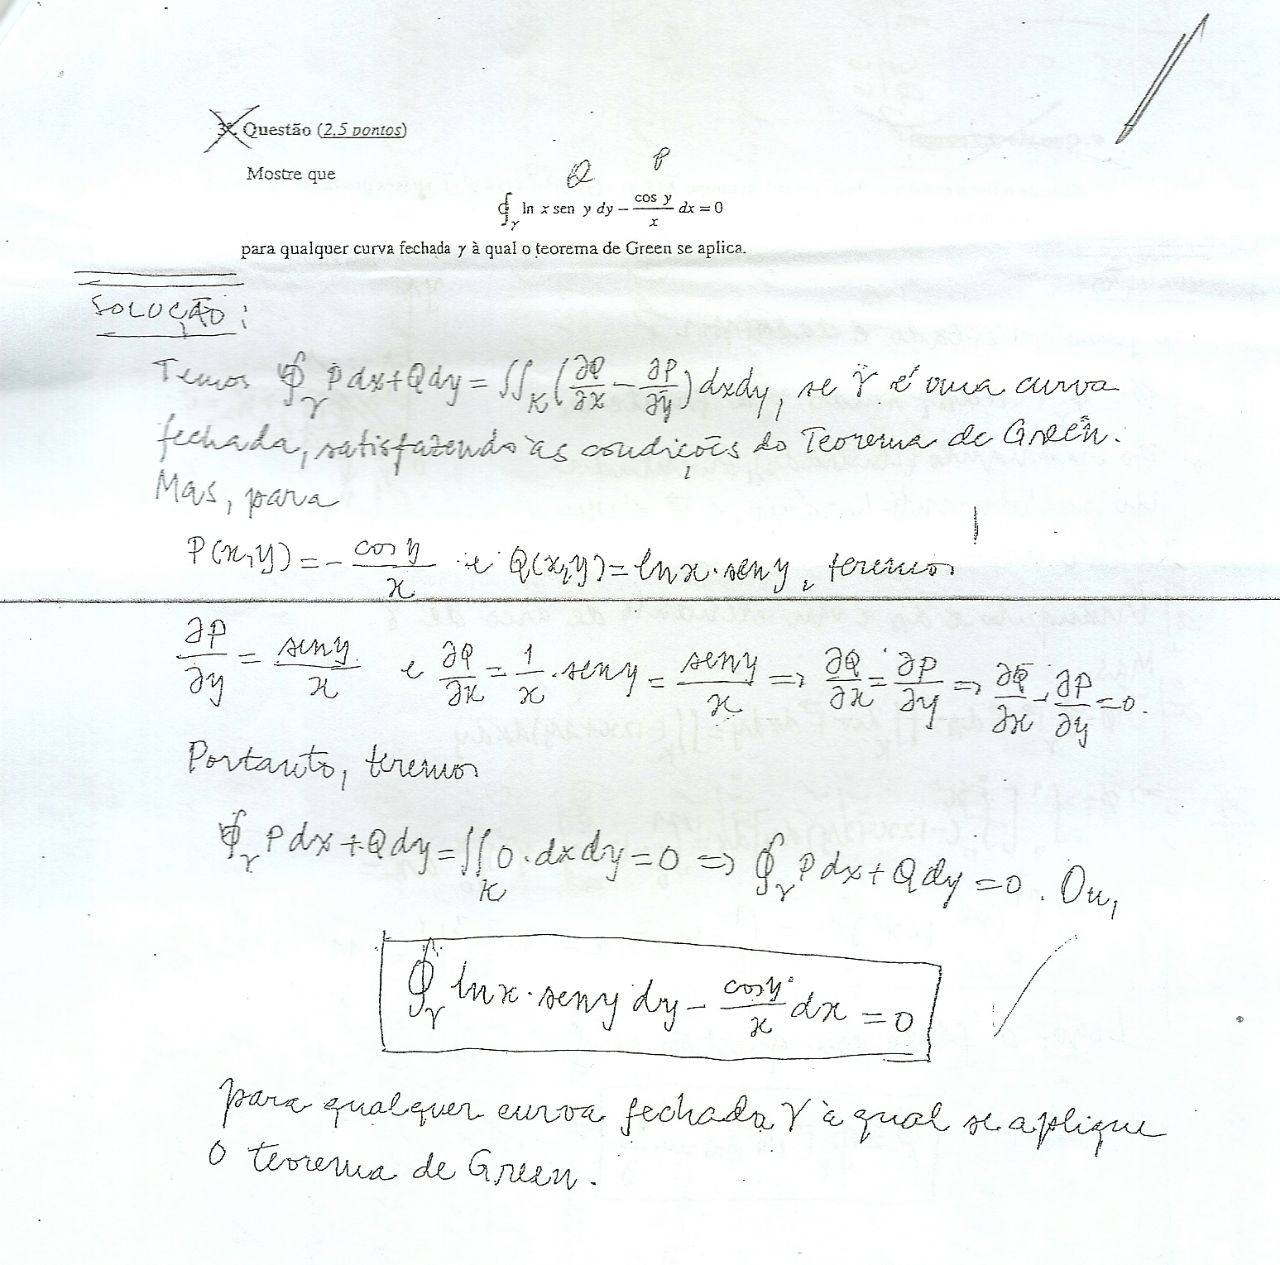 3ª Questão (2,5 pontos)
Mostre que
Q P
∮γ ln x sen y dy − cos y/x dx = 0
para qualquer curva fechada γ à qual o teorema de Green se aplica.
SOLUÇÃO:
Temos ∮γ Pdx+Qdy = ∬K (∂Q/∂x − ∂P/∂y) dxdy, se γ é uma curva
fechada, satisfazendo às condições do Teorema de Green.
Mas, para
P(x,y) = − cos y/x e Q(x,y) = ln x · sen y, teremos
∂P/∂y = sen y/x e ∂Q/∂x = 1/x · sen y = sen y/x ⇒ ∂Q/∂x = ∂P/∂y ⇒ ∂Q/∂x − ∂P/∂y = 0.
Portanto, teremos
∮γ Pdx + Qdy = ∬K 0 · dxdy = 0 ⇒ ∮γ Pdx + Qdy = 0. Ou,
∮γ ln x · sen y dy − cos y/x dx = 0
para qualquer curva fechada γ à qual se aplique
o teorema de Green.